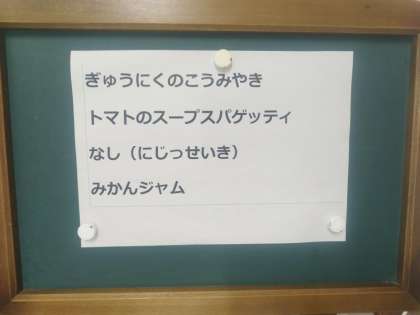 ぎゅうにくのこうみやき
トマトのスープスパゲッティ
なし（にじっせいき）
みかんジャム